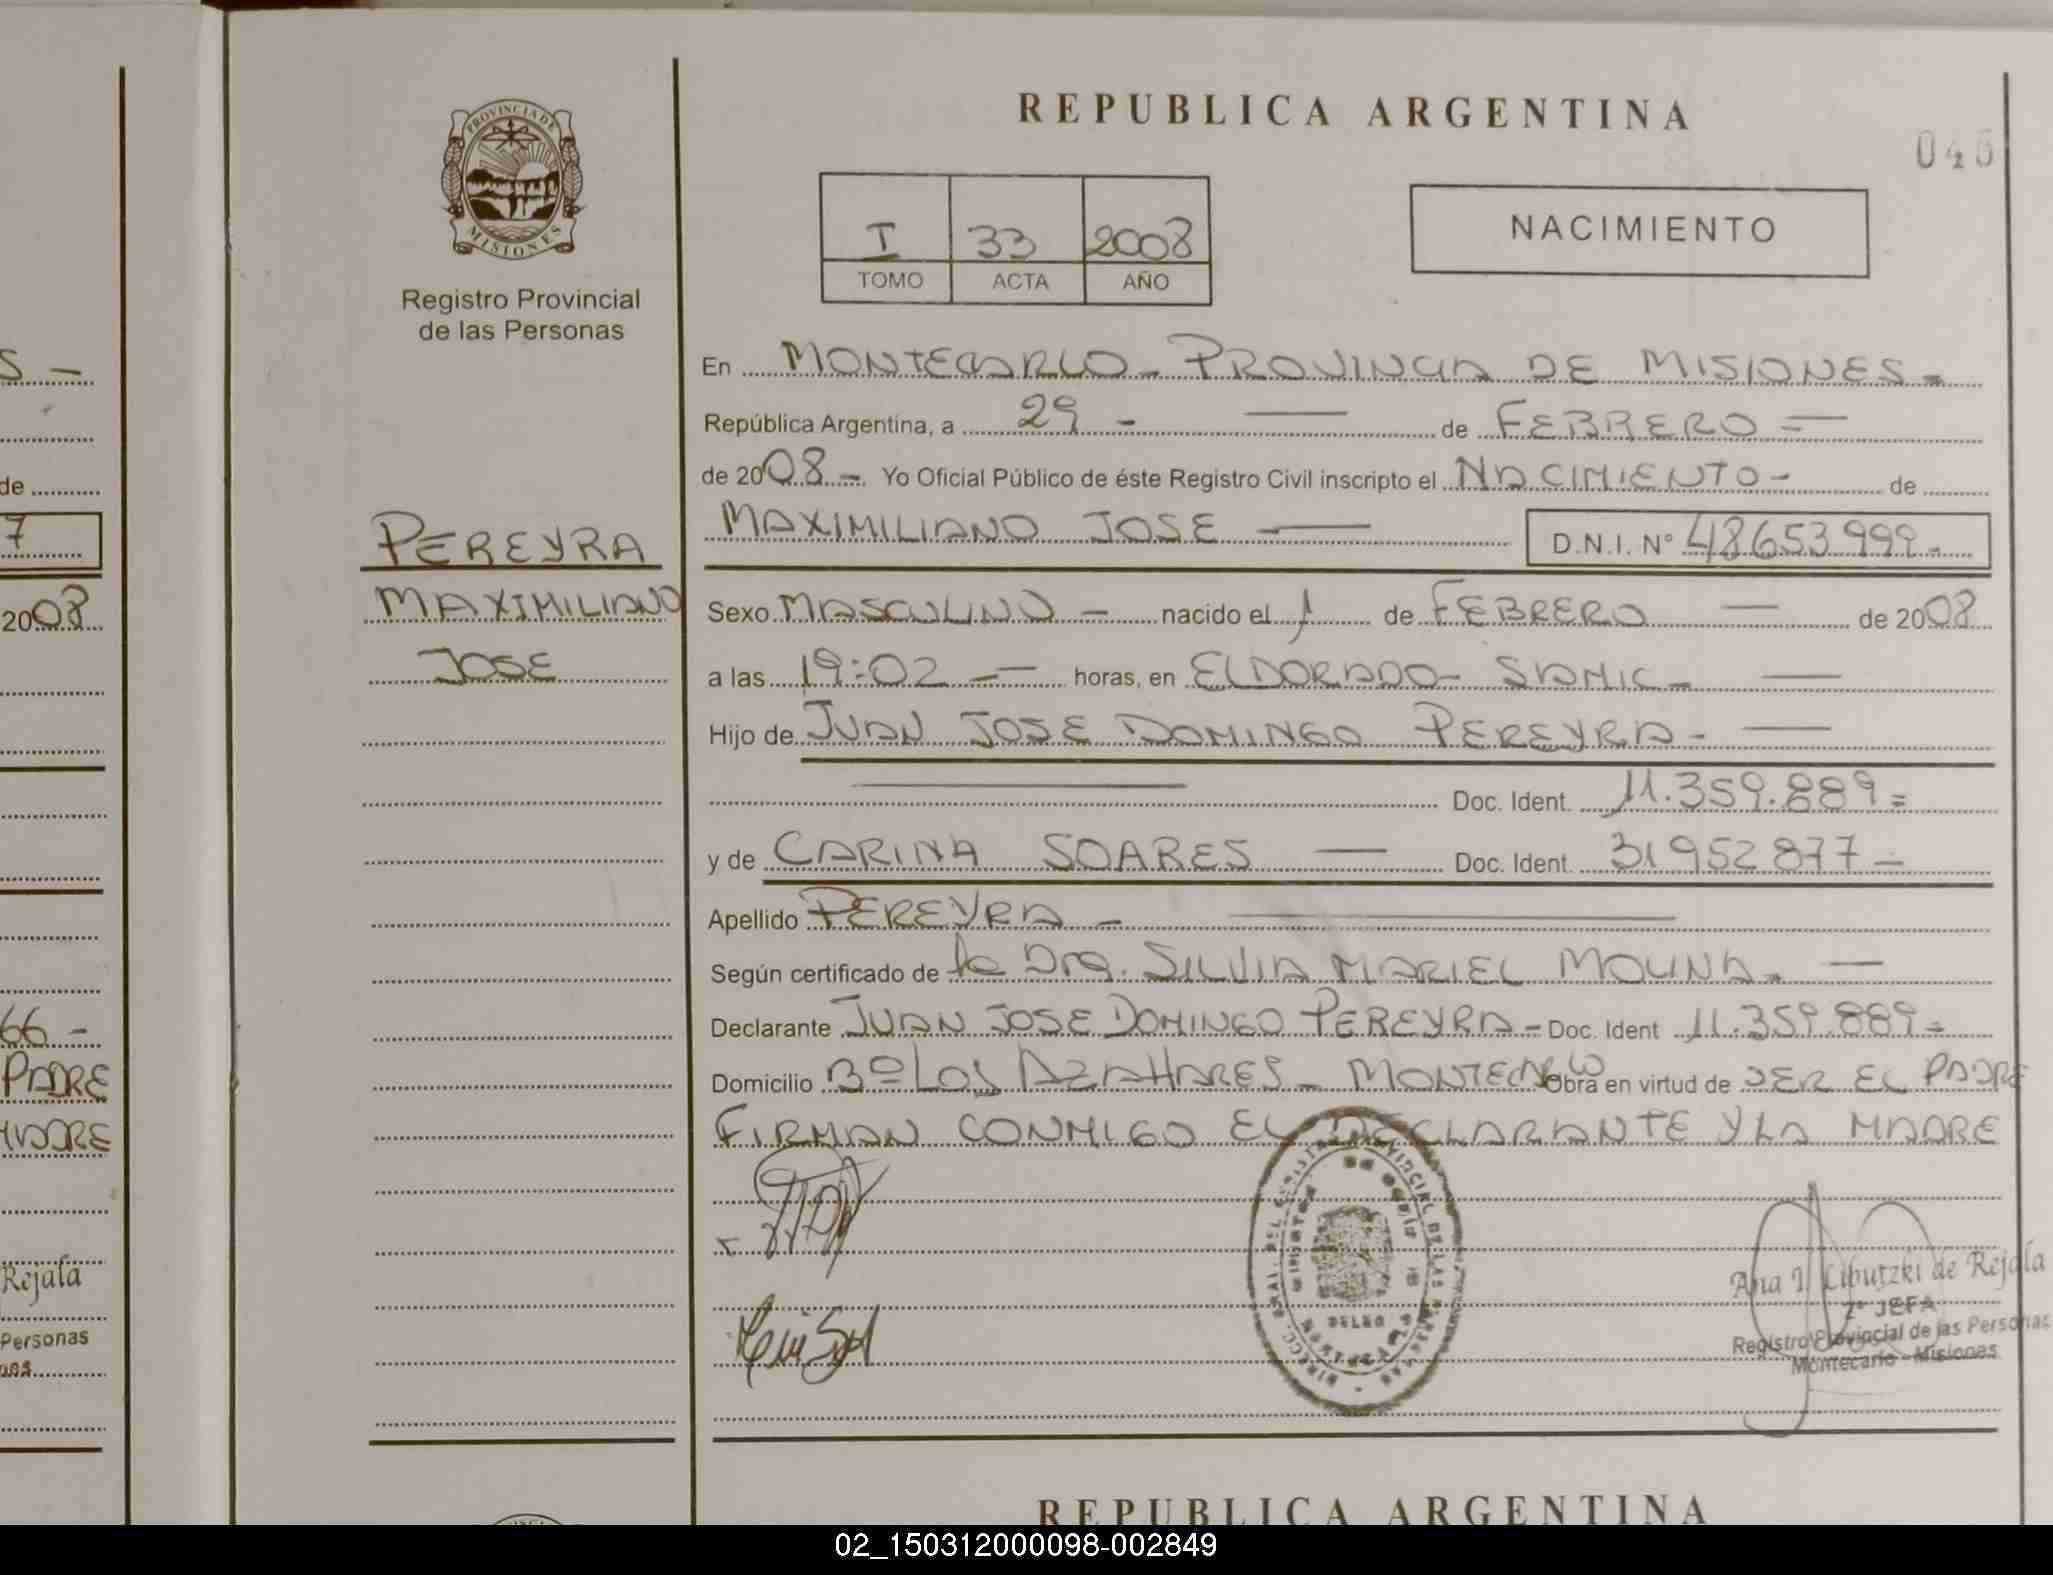 REPUBLICA ARGENTINA
PROVINCIA DE
MISIONES
Registro Provincial
de las Personas
I 33 2008
TOMO ACTA AÑO
NACIMIENTO
En MONTECARLO - PROVINCIA DE MISIONES -
República Argentina, a 29 - — de FEBRERO —
de 2008 - Yo Oficial Público de éste Registro Civil inscripto el NACIMIENTO - de
MAXIMILIANO JOSE — D.N.I. N° 48653999 -
PEREYRA
MAXIMILIANO
JOSE
Sexo MASCULINO - nacido el 1 de FEBRERO — de 2008
a las 19:02 - horas, en ELDORADO - SAMIC - —
Hijo de JUAN JOSE DOMINGO PEREYRA - —
— Doc. Ident. 11.359.889 =
y de CARINA SOARES — Doc. Ident. 31952877 -
Apellido PEREYRA - —
Según certificado de la Dra. SILVIA MARIEL MOLINA. —
Declarante JUAN JOSE DOMINGO PEREYRA - Doc. Ident 11.359.889 -
Domicilio Bº LOS AZAHARES - MONTECARLO Obra en virtud de SER EL PADRE
FIRMAN CONMIGO EL DECLARANTE Y LA MADRE
Ana I. Libutzki de Rejala
2ª JEFA
Registro Provincial de las Personas
Montecarlo - Misiones
S -
de
7
2008
66 -
PADRE
MADRE
Rejala
Personas
REPUBLICA ARGENTINA
02_150312000098-002849